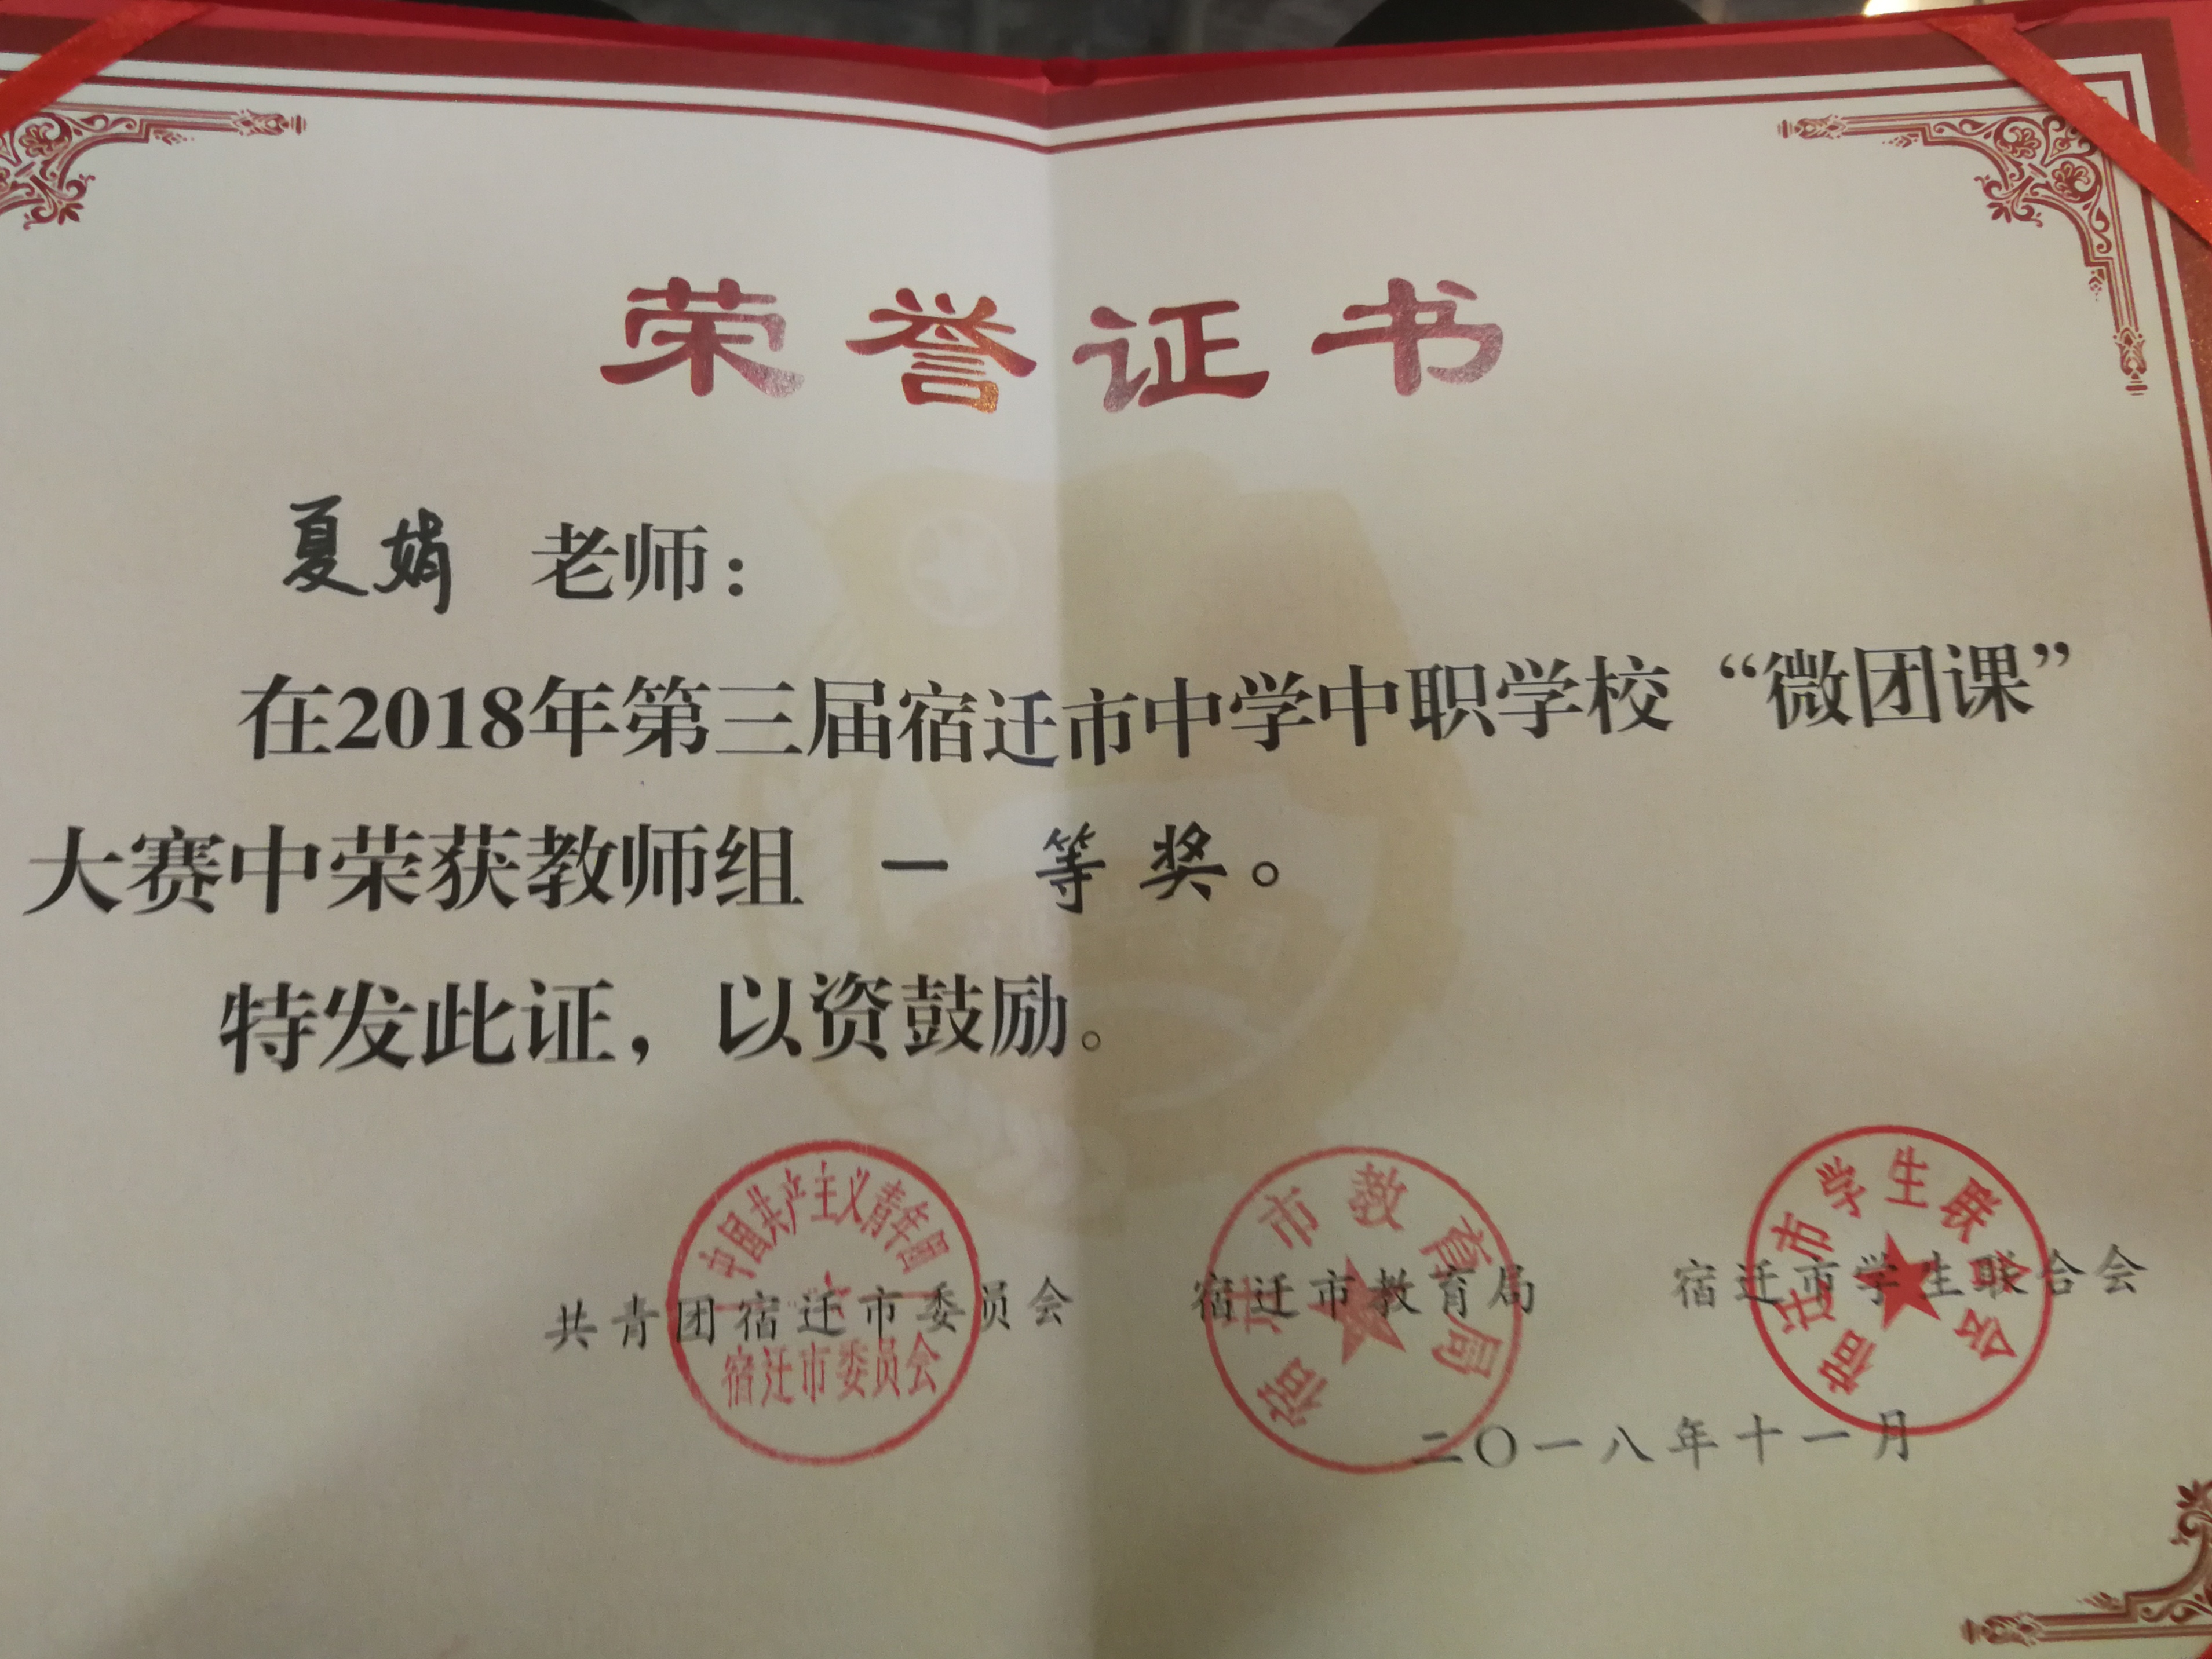 荣誉证书
夏娟 老师：
在2018年第三届宿迁市中学中职学校“微团课”
大赛中荣获教师组 一 等奖。
特发此证，以资鼓励。
中国共产主义青年团
宿迁市委员会
宿迁市教育局
宿迁市学生联合会
共青团宿迁市委员会 宿迁市教育局 宿迁市学生联合会
二〇一八年十一月